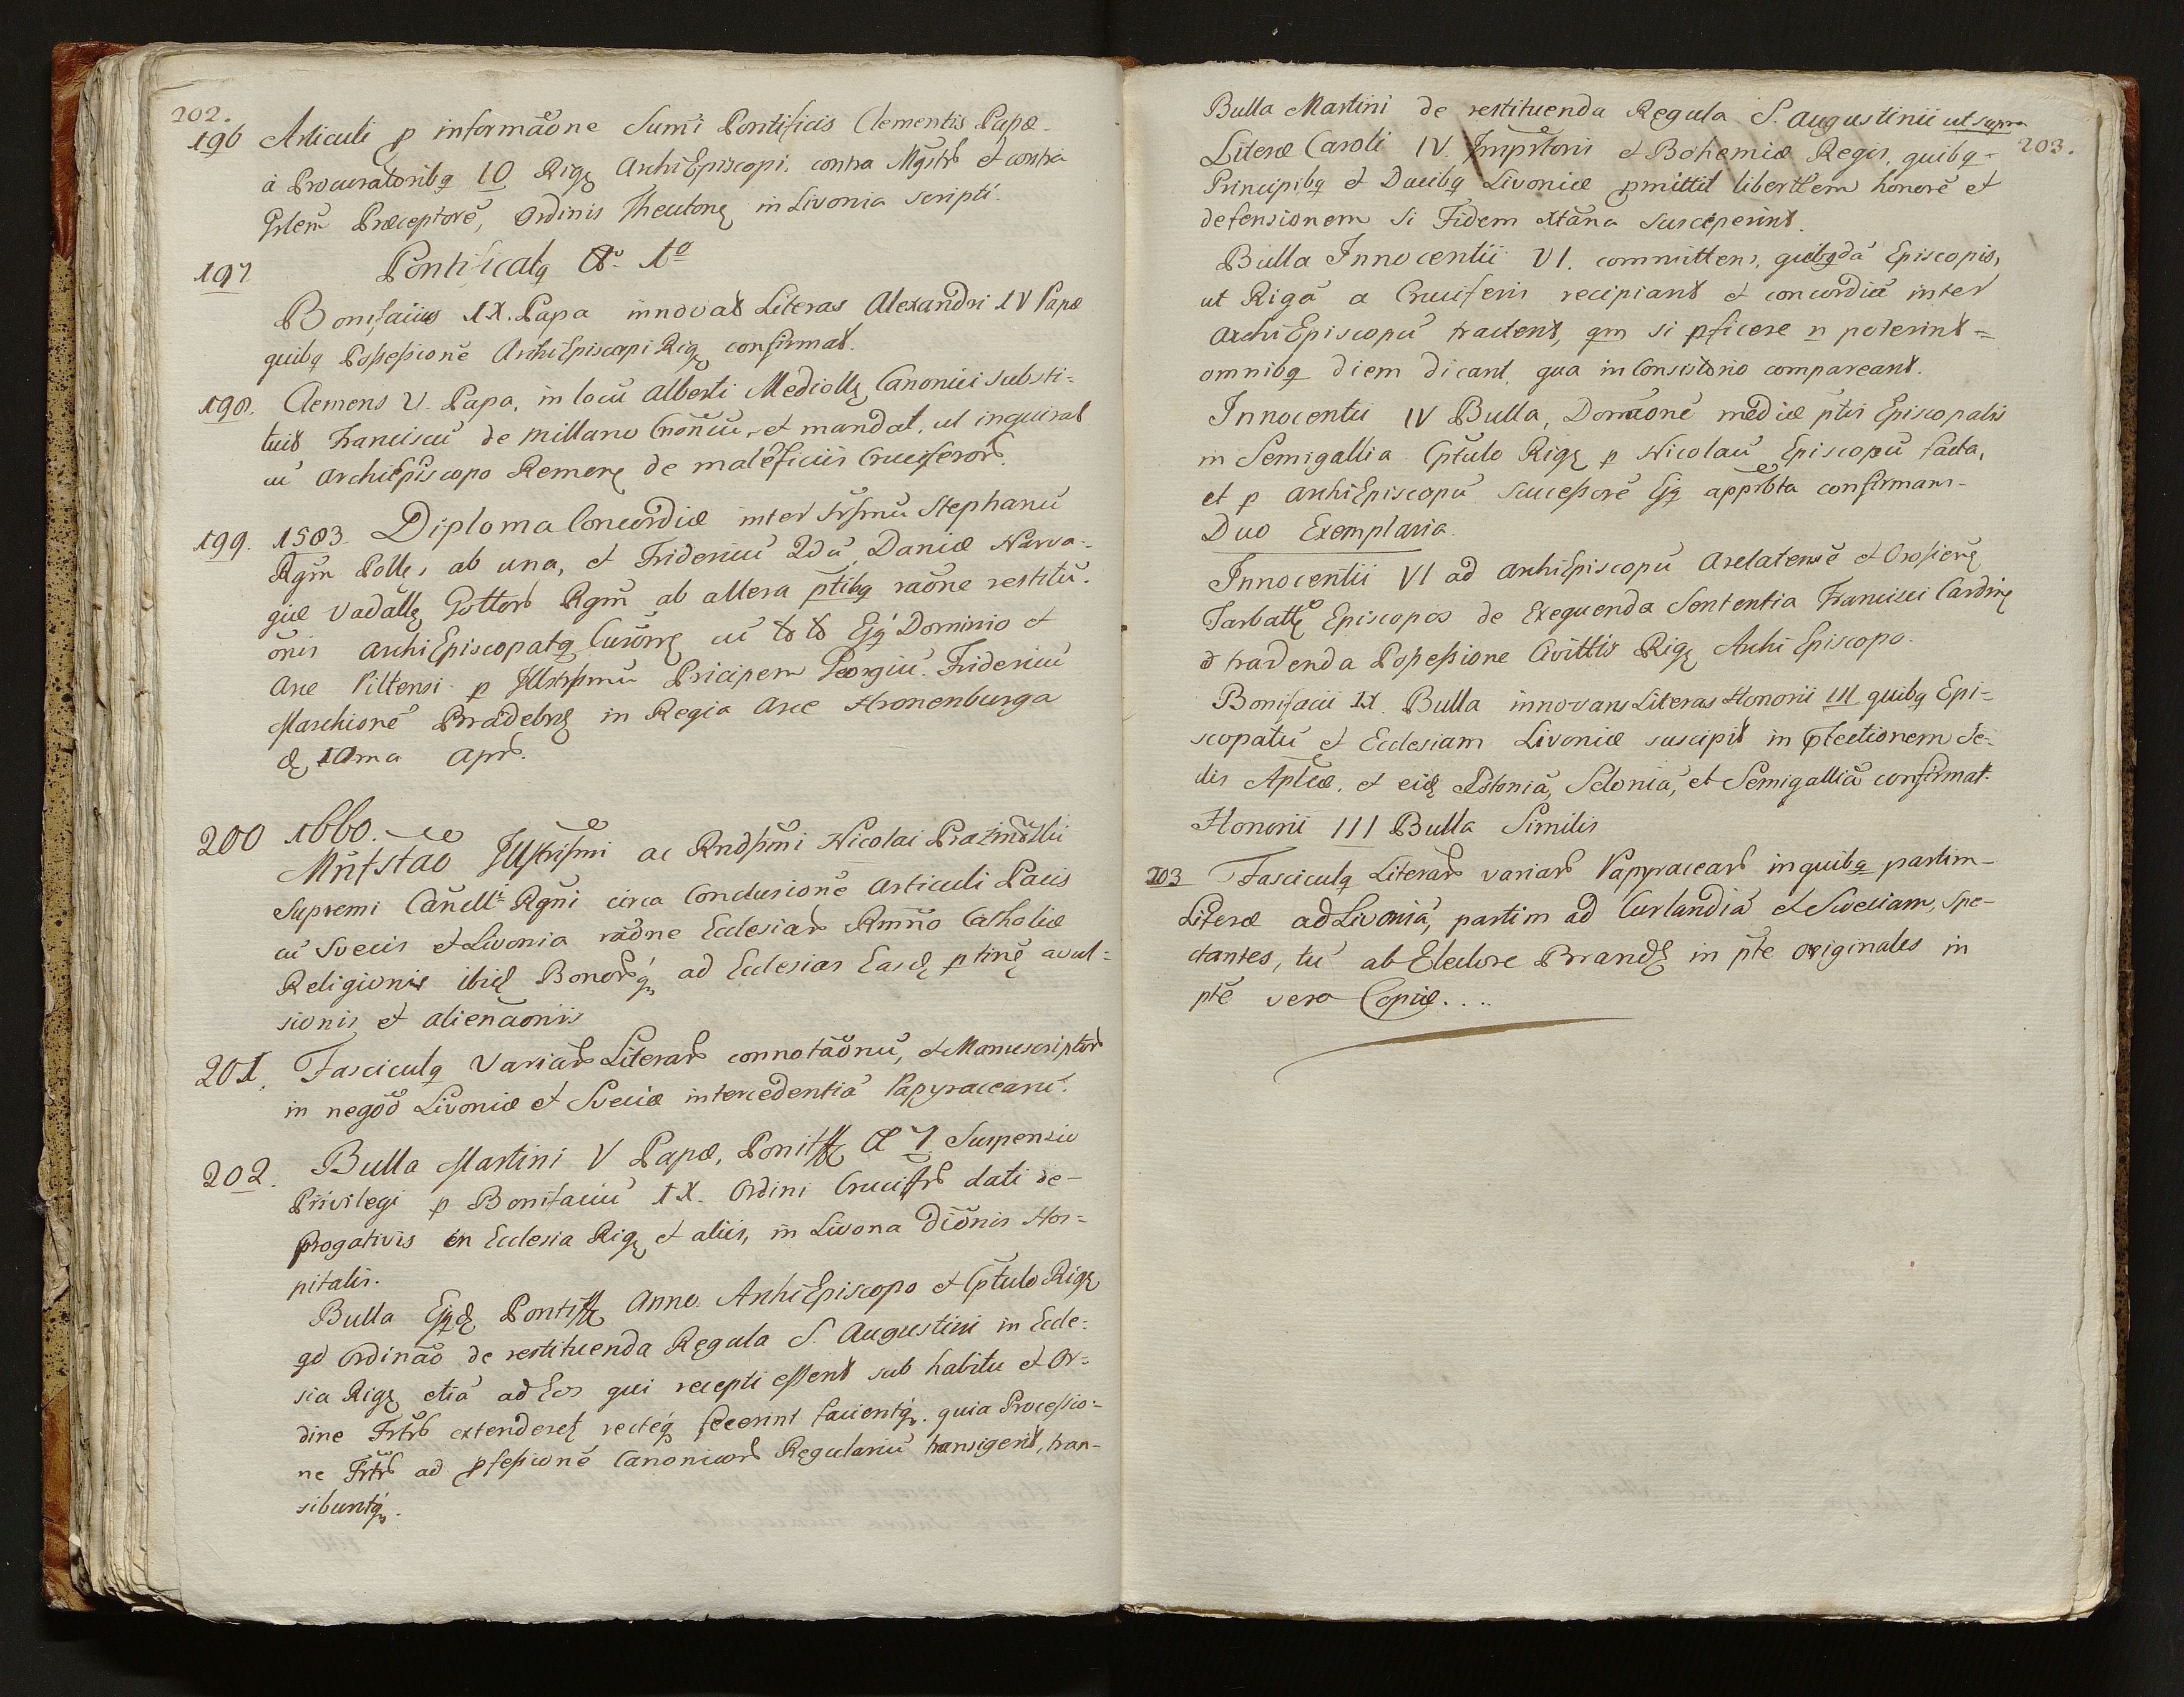 202.
196 Articuli p informaõne Sum̃i Pontificis Clementis Papæ
à Procuratoribq 10 Rigę ArchiEpiscopi, contra Mgstrũ et contra
Prlem̃ Præceptorẽ, Ordinis Theutonę in Livonia scripti.
197 Pontificatq Aº 1º
Bonifacius IX. Papa innovat Literas Alexandri IV Papæ
quibq Poſseſsionẽ ArchiEpiscopi Rigę confirmat.
198. Clemens V. Papa, in locũ Alberti Mediollę Canonici substi=
tuit Franciscũ de Millano Cnoñcũ, et mandat, ut inquirat
cũ ArchiEpiscopo Remenę de maleficiis Cruciferorũ.
199. 1583. Diploma Concordiæ inter Srſmũ Stephanũ
Rgm̃ Pollę, ab una, et Fridericũ 2dũ Daniæ Norva-
giæ Vadallę Gottorũ Rgm̃ ab altera ptibq raõne restitu=
õnis ArchiEpiscopatq Curoñę cũ Ejq Dominio et
Arce Piltensi p Jllstrſsmũ Pricipem Georgiũ Fridericũ
Marchionẽ Brãdebrę in Regia Arce Hronenburga
dę 10ma Apr.
200 1660.
Mnfstaõ Jllstriſsmi ac Rndſsmi Nicolai Prazmowskii
Supremi Cãncll: Rgñi circa Conclusionẽ Articuli Pacis
cũ Svecis et Livonia raõne Ecclesiarũ Rmño Catholicæ
Religionis ibidę Bonorũq ad Ecclesias Easdę ptinę avul=
sionis et alienãonis
201. Fasciculq Variarũ Literarũ connotãonũ, et Manuscriptorũ
in negoõ Livoniæ et Sveciæ intercedentiã Papyraceanũ.
202. Bulla Martini V Papæ, Pontiffę Aº 7 Suspensio
Privilegi p Bonifaciũ IX. Ordini Crucifrũ dati de-
prrogativis in Ecclesia Rigę et aliis, in Livona Diõnis Hos=
pitalis.
Bulla Ejqdę Pontiffę Anno. ArchiEpiscopo et Cptulo Rigę
qd Ordinaõ de restituenda Regula S. Augustini in Eccle=
sia Rigę etiã ad Eos qui recepti eſsent sub habitu et Or=
dine Frtrũ extenderet rectéq fecerint facientq. quia Proceſsio=
ne Frtrũ ad pfeſsionẽ Canonicorũ Regulariũ transigerit, tran-
sibuntq.
203.
Bulla Martini de restituenda Regula S. Augustinii ut supra
Literæ Caroli IV. Jmprtoris et Bohemiæ Regis, quibq-
Principibq et Ducibq Livoniæ pmittit liberttem honorẽ et
defensionem si Fidem Xtãna susceperint.
Bulla Innocentii VI. committens, quibqdã Episcopis,
ut Rigã a Cruciferis recipiant et concordiã inter
ArchiEpiscopũ tractent, qm si pficere n poterint=
omnibq diem dicant, qua in Consistorio compareant.
Innocentii IV Bulla, Donãonẽ mediæ ptis Episcopalis
in Semigallia Cptulo Rigę p Nicolaũ Episcopũ facta,
et p ArchiEpiscopũ Succeſsorẽ Ejq apprbta confirmans-
Duo Exemplaria.
Innocentii VI ad ArchiEpiscopũ Arelatensẽ et Oroſienę
Tarbattę Episcopos de Exequenda Sententia Francisci Cardinę
d tradenda Poſseſsione Civittis Rigę ArchiEpiscopo.
Bonifacii IX. Bulla innovans Literas Honorii III quibq Epi=
scopatũ et Ecclesiam Livoniæ suscipit in Ptectionem Se=
dis Aplicæ, et eidę Estoniã, Seloniã, et Semigalliã confirmat.
Honorii III Bulla Similis
203 Fasciculq Literarũ variarũ Papyracearũ in quibq partim-
Literæ ad Livoniã, partim ad Curlandiã et Sveciam, spe-
ctantes, tũ ab Electore Brandę in pte originales in
pte vero Copiæ....